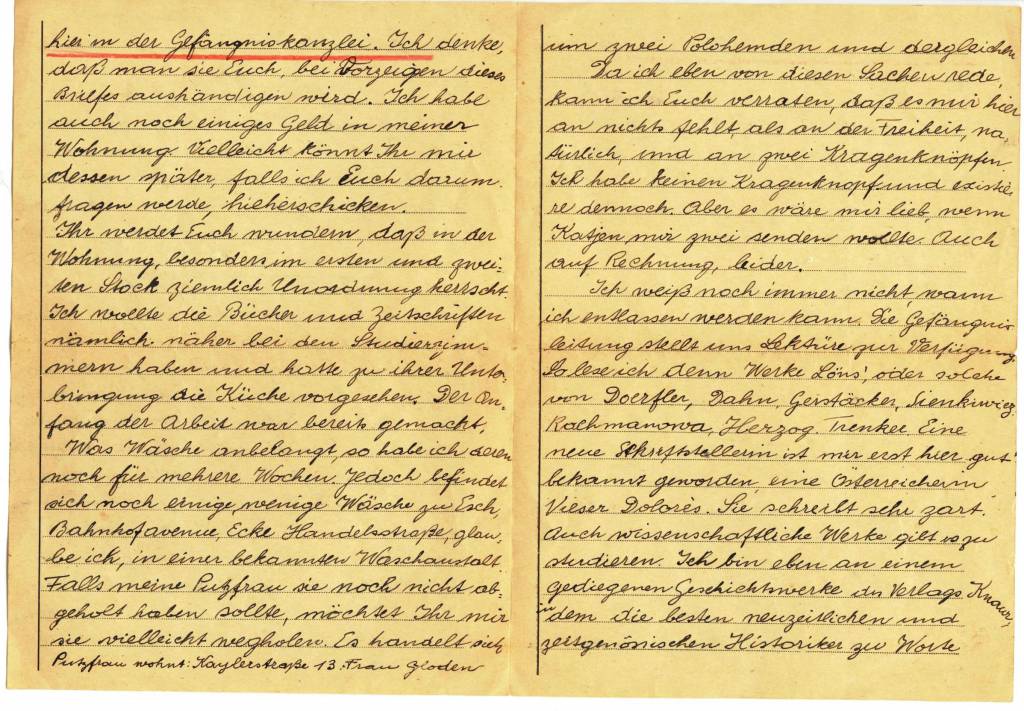 hier in der Gefängniskanzlei. Ich denke,
daß man sie Euch, bei Vorzeigen dieses
Briefes aushändigen wird. Ich habe
auch noch einiges Geld in meiner
Wohnung. Vielleicht könnt Ihr mir
dessen später, falls ich Euch darum
fragen werde, hieherschicken.
Ihr werdet Euch wundern, daß in der
Wohnung, besonders im ersten und zwei-
ten Stock ziemlich Unordnung herrscht.
Ich wollte die Bücher und Zeitschriften
nämlich näher bei den Studierzim-
mern haben und hatte zu ihrer Unter-
bringung die Küche vorgesehen. Der An-
fang der Arbeit war bereits gemacht.
Was Wäsche anbelangt, so habe ich deren
noch für mehrere Wochen. Jedoch befindet
sich noch einige wenige Wäsche zu Esch,
Bahnhofavenue, Ecke Handelsstraße, glau-
be ich, in einer bekannten Waschanstalt.
Falls meine Putzfrau sie noch nicht ab-
geholt haben sollte, möchtet Ihr mir
sie vielleicht wegholen. Es handelt sich
Putzfrau wohnt: Kaylerstraße 13. Frau Gloden
um zwei Polohemden und dergleichen
Da ich eben von diesen Sachen rede,
kann ich Euch verraten, daß es mir hier
an nichts fehlt, als an der Freiheit, na-
türlich, und an zwei Kragenknöpfen.
Ich habe keinen Kragenknopf und existie-
re dennoch. Aber es wäre mir lieb, wenn
Katjen mir zwei senden wollte. Auch
auf Rechnung, leider.
Ich weiß noch immer nicht wann
ich entlassen werden kann. Die Gefängnis-
leitung stellt uns Lektüre zur Verfügung.
So lese ich denn Werke Löns', oder solche
von Doerfler, Dahn, Gerstäcker, Sienkiwicz,
Rachmanowa, Herzog. Trenker. Eine
neue Schriftstellerin ist mir erst hier gut
bekannt geworden, eine Österreicherin,
Vieser Dolorès. Sie schreibt sehr zart.
Auch wissenschaftliche Werke gilt es zu
studieren. Ich bin eben an einem
gediegenen Geschichtswerke des Verlags Knaur,
in dem die besten neuzeitlichen und
zeitgenössischen Historiker zu Worte